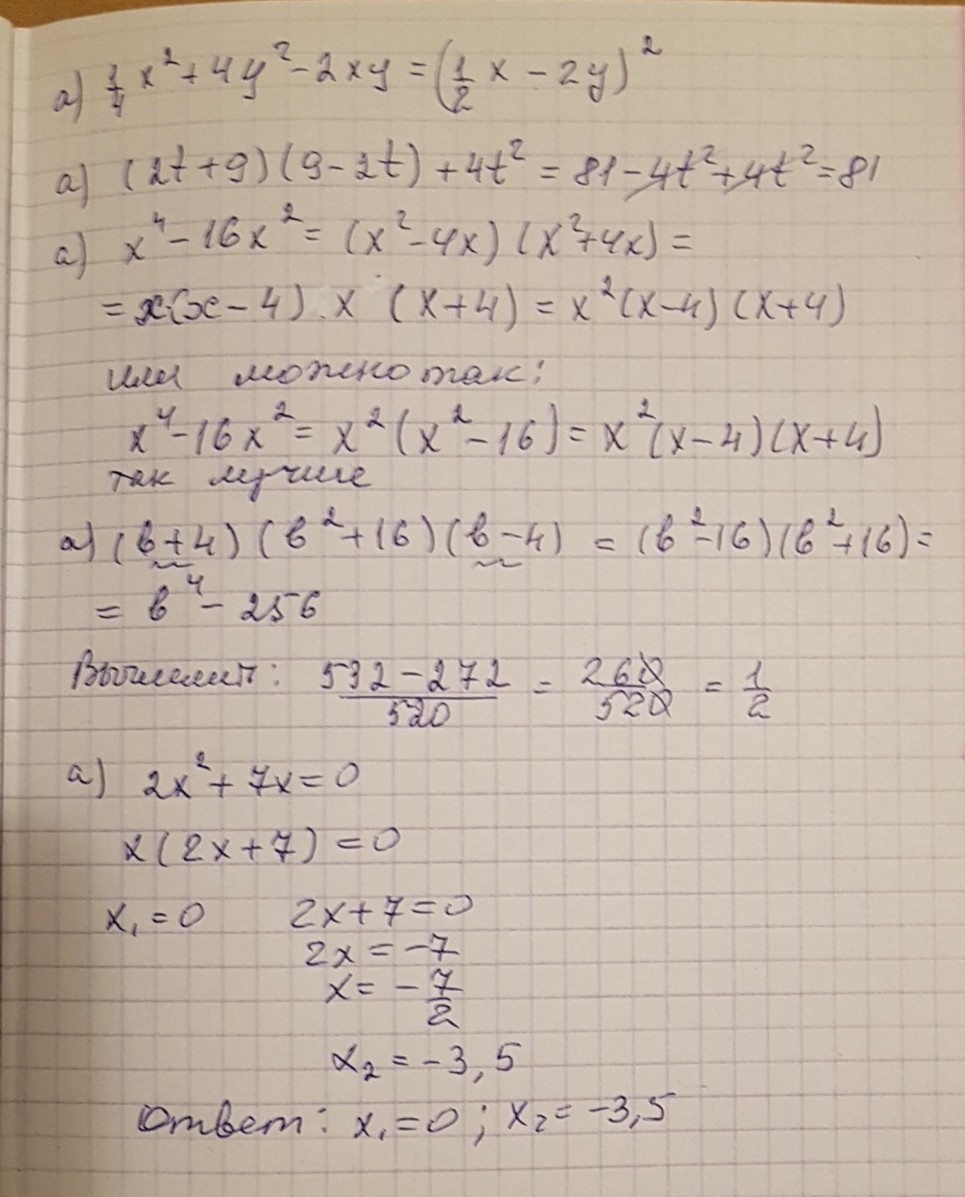 а) 1/4 x² + 4y² - 2xy = (1/2 x - 2y)²
а) (2t+9)(9-2t) + 4t² = 81 - 4t² + 4t² = 81
а) x⁴ - 16x² = (x² - 4x)(x² + 4x) =
= x(x - 4) · x (x + 4) = x²(x-4)(x+4)
или можно так:
x⁴ - 16x² = x²(x² - 16) = x²(x-4)(x+4)
так лучше
а) (в+4)(в²+16)(в-4) = (в²-16)(в²+16) =
= в⁴ - 256
Вычислить: (532 - 272)/520 = 260/520 = 1/2
а) 2x² + 7x = 0
x(2x+7) = 0
x₁ = 0 2x+7=0
2x = -7
x = - 7/2
x₂ = -3,5
Ответ: x₁=0; x₂= -3,5